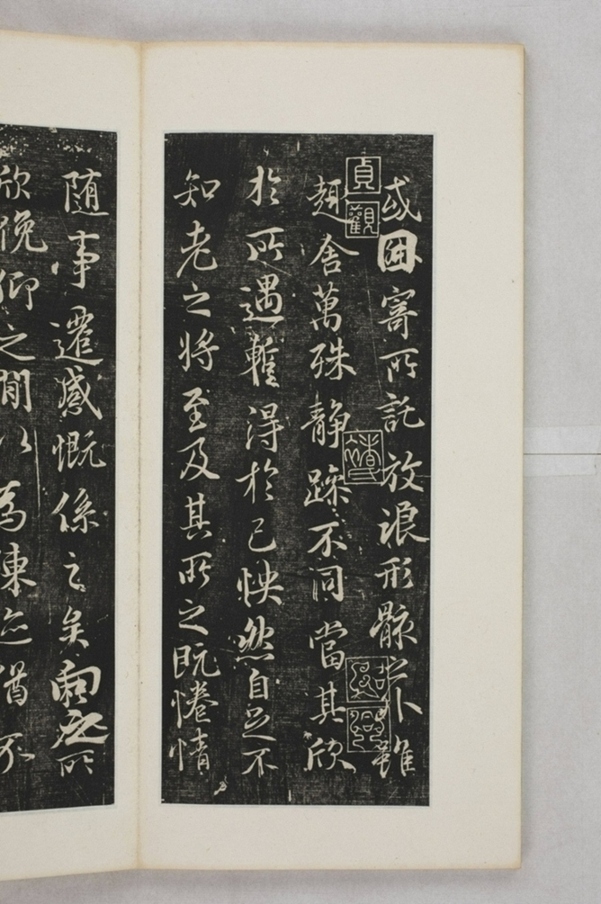 或因寄所託放浪形骸之外雖
貞觀
趣舍萬殊静躁不同當其欣
於所遇蹔得於己怏然自足不
知老之将至及其所之既惓情
随事遷感慨係之矣向之所
欣俛仰之閒以為陳迹猶不